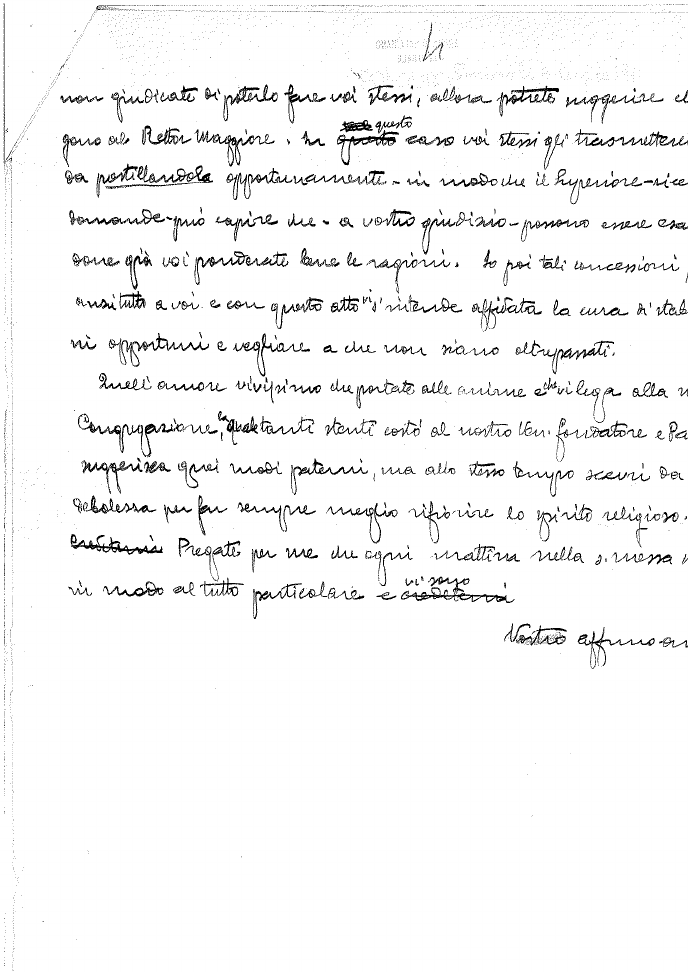 4
non giudicate di poterlo fare voi stessi, allora potrete suggerire
gano al Rettor Maggiore. In questo caso voi stessi gli trasmetterete
da postillandola opportunamente - in modo che il Superiore - rice
domande - può capire che - a vostro giudizio - possono essere esa
done già voi ponderate bene le ragioni. Io poi tali concessioni
anzitutto a voi e con questo atto vi s'intende affidata la cura di stab
ni opportuni e vegliare a che non siano oltrepassati.
Quell'amore vivissimo che portate alle anime e che vi lega alla
Congregazione, la quale tanti stenti costò al nostro Ven. fondatore e Pa
suggerisca quei modi paterni, ma allo stesso tempo scevri da
debolezza per far sempre meglio rifiorire lo spirito religioso.
Credetemi Pregate per me che ogni mattina nella s. messa
in modo al tutto particolare e credetemi vi sono
Vostro affmo